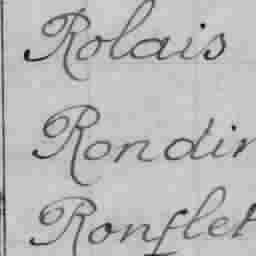 Rolais
Rondin
Ronflet